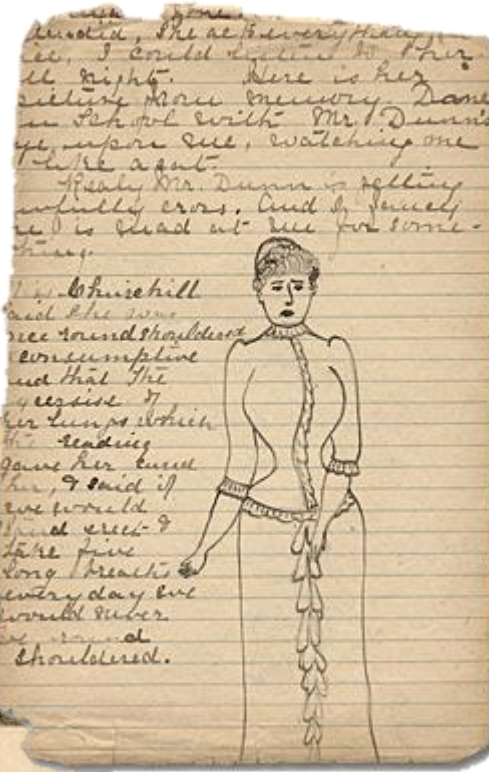 I could listen to her
ll night. Here is her
picture from memory. Done
in School with Mr. Dunn's
ye upon me, watching me
like a cat.
Realy Mr. Dunn is getting
wfully cross. And I fancy
he is mad at me for some-
thing.
Churchill
said she was
once roundshouldered
consumptive
and that the
exersise of
her lungs which
the reading
gave her cured
her, & said if
we would
stand erect &
take five
long breaths
everyday we
would never
be round
shouldered.